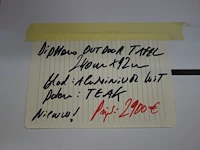 Diphano OUTDOOR TAFEL
240cm x 92cm
blad: Aluminium WIT
Poten: TEAK
Nieuw! Prijs: 2900 €